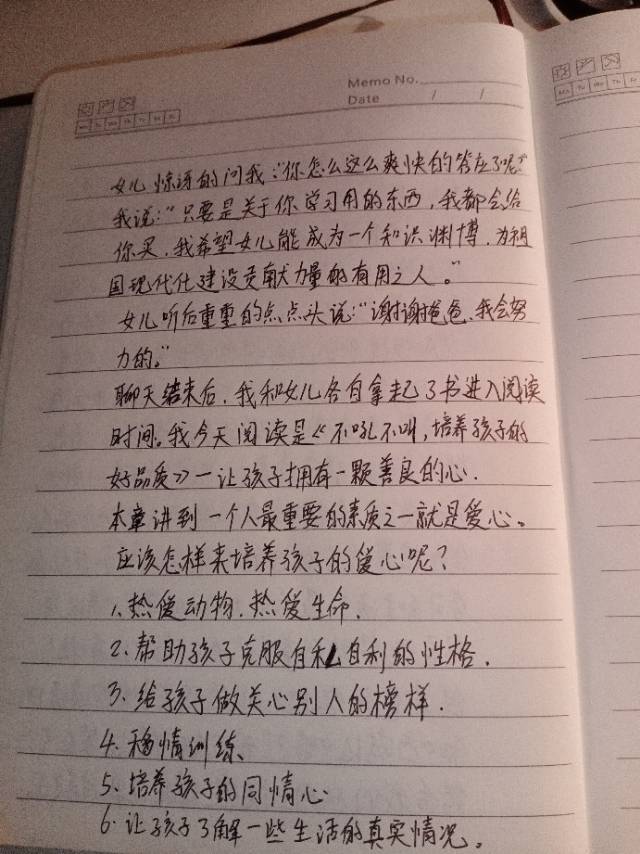 Memo No.
Date / /
女儿惊讶的问我:"你怎么这么爽快的答应了呢?"
我说:"只要是关于你学习用的东西,我都会给
你买,我希望女儿能成为一个知识渊博,为祖
国现代化建设贡献力量的有用之人。"
女儿听后重重的点点头说:"谢谢爸爸,我会努
力的。"
聊天结束后,我和女儿各自拿起了书进入阅读
时间。我今天阅读是《不吼不叫,培养孩子的
好品质》一让孩子拥有一颗善良的心.
本章讲到一个人最重要的素质之一就是爱心。
应该怎样来培养孩子的爱心呢?
1、热爱动物.热爱生命.
2、帮助孩子克服自私自利的性格.
3、给孩子做关心别人的榜样.
4、移情训练、
5、培养孩子的同情心
6、让孩子了解一些生活的真实情况。